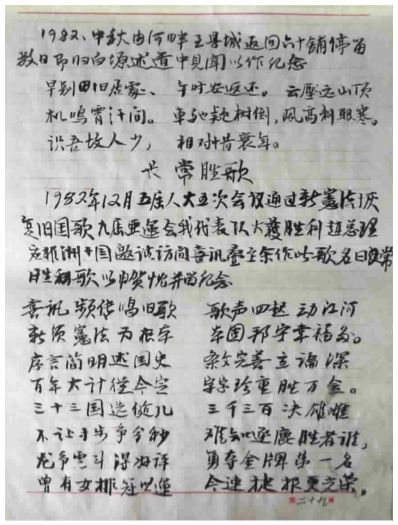 1982、中秋由何畔至县城返回六十铺停留
数日即归白塬述道中见闻以作纪念
早别旧居家、午时安返还。云压远山顶
机鸣霄汗间。车驰树倒,风高利取寒。
识吾故人少,相对惜衰年。
长常胜歌
1982年12月五届人大五次会议通过新宪法恢
复旧国歌九届亚运会我代表队大获胜利赵总理
应非洲十国邀请访问喜讯
胜利歌以申贺忱并留纪念
喜讯频传唱旧歌 歌声四起动江河
新颁宪法为根本 幸福多。
序言简明述国史 条文完善立论深
百年大计从今定 字字珍重胜万金。
三十三国选健儿 三千三百决雄雌
不让寸步争分秒 难知逐鹿胜者谁,
龙争虎斗深好评 勇夺金牌第一名
曾有女排冠世运 今速捷报更光荣。
二十九